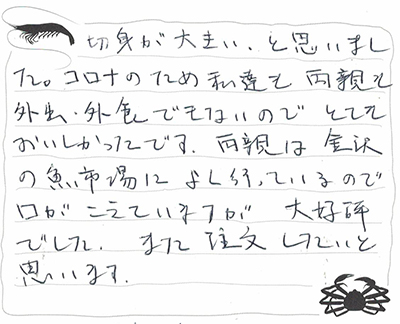 切身が大きい、と思いまし
た。コロナのため私達も両親も
外出・外食できないのでとても
おいしかったです。両親は金沢
の魚市場によく行っているので
口がこえていますが 大好評
でした。また注文したいと
思います。